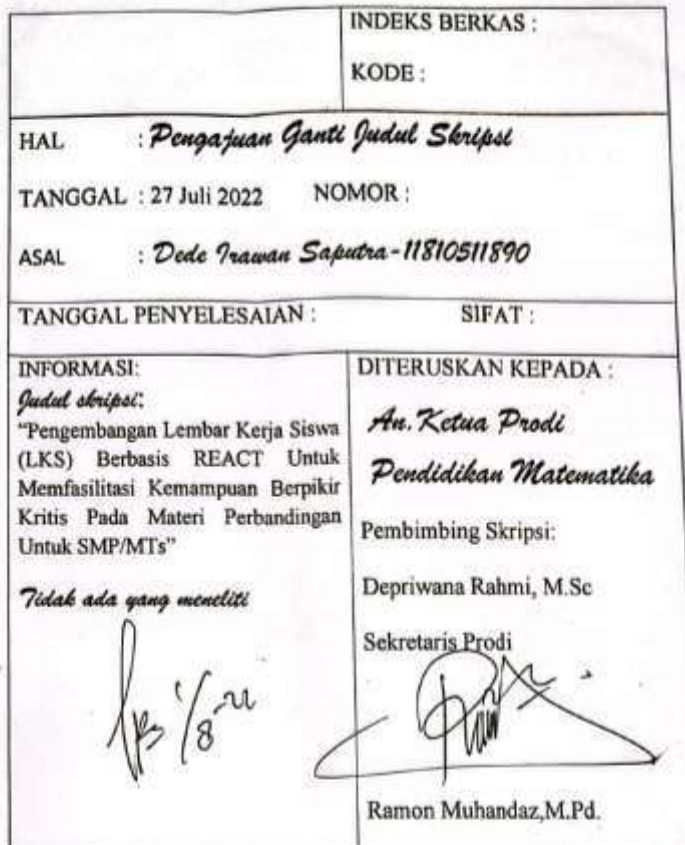 INDEKS BERKAS :
KODE :
HAL : Pengajuan Ganti Judul Skripsi
TANGGAL : 27 Juli 2022 NOMOR :
ASAL : Dede Irawan Saputra-11810511890
TANGGAL PENYELESAIAN : SIFAT :
INFORMASI:
Judul skripsi:
“Pengembangan Lembar Kerja Siswa
(LKS) Berbasis REACT Untuk
Memfasilitasi Kemampuan Berpikir
Kritis Pada Materi Perbandingan
Untuk SMP/MTs”
Tidak ada yang meneliti
DITERUSKAN KEPADA :
An. Ketua Prodi
Pendidikan Matematika
Pembimbing Skripsi:
Depriwana Rahmi, M.Sc
Sekretaris Prodi
Ramon Muhandaz,M.Pd.